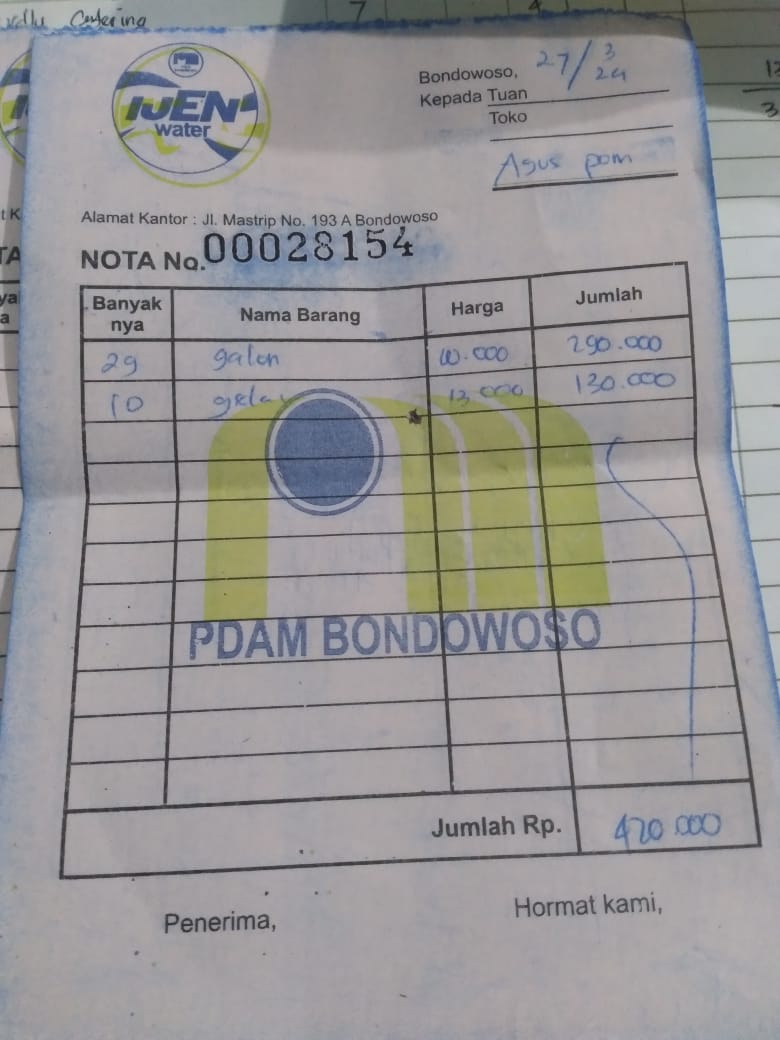 Catering
7
IJEN
water
Bondowoso, 27/3 24
Kepada Tuan
Toko
Agus pom
Alamat Kantor : Jl. Mastrip No. 193 A Bondowoso
NOTA No. 00028154
Banyak nya Nama Barang Harga Jumlah
29 galon 10.000 290.000
10 gelas 13.000 130.000
PDAM BONDOWOSO
Jumlah Rp. 420.000
Penerima, Hormat kami,